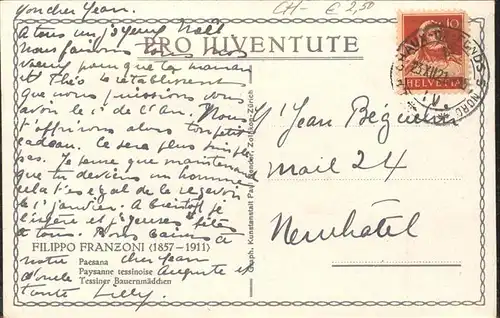 Mon cher Jean.
CH- € 2,50
A tous un joyeux Noël
Nous faisons tous nos
PRO JUVENTUTE
vœux pour que ta maman
et Théo se rétablissent
que nous puissions vous
avoir le 1er de l'An. Nous
t'offrirons alors ton petit
cadeau. Ce sera plus
pas. Je pense que maintenant
que tu deviens un homme
cela t'est égal de le recevoir
le 1er janvier. A bientôt je
l'espère et joyeuses fêtes
à tous. Bons baisers à
notre cher Jean
d'oncle Auguste et
tante Lilly.
FILIPPO FRANZONI (1857-1911)
Paesana
Paysanne tessinoise
Tessiner Bauernmädchen
Graph. Kunstanstalt Paul Bender, Zollikon-Zürich
10
HELVETIA
LA CHAUX-DE-FONDS
NORD
23.XII.21
IV.
Jean Béguelin
Mail 24
Neuchâtel